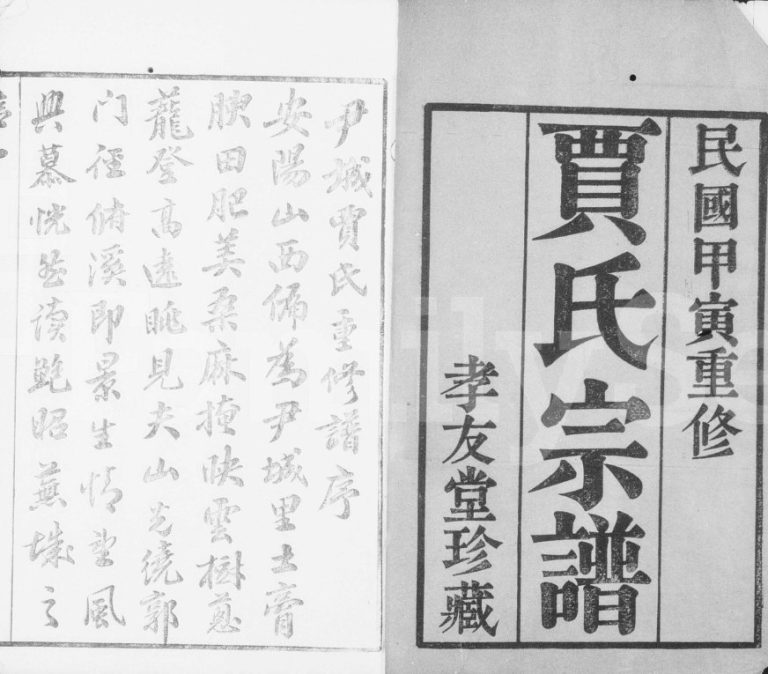 民國甲寅重修
賈氏宗譜
孝友堂珍藏
尹城賈氏重修譜序
安陽山西偏為尹城里土膏
腴田肥美桑麻掩映雲樹蔥
蘢登高遠眺見夫山光繞郭
门徑俯溪即景生情望風
興慕恍然讀鮑昭蕪城之